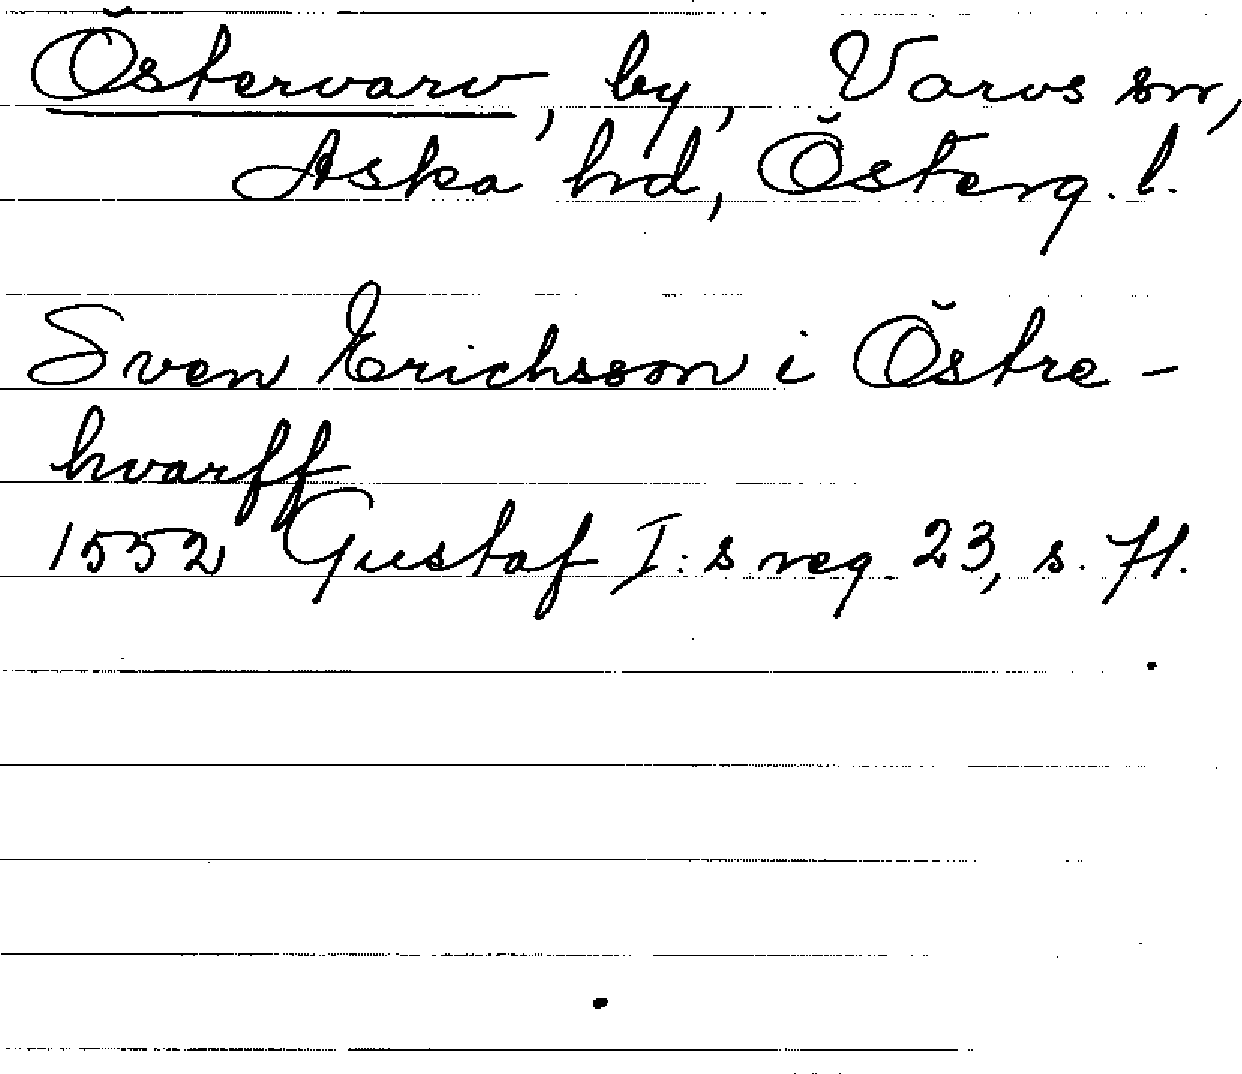 Östervarv, by, Varvs sn,
Aska hd, Österg. l.
Sven Erichsson i Östre-
hvarff
1552 Gustaf I:s reg 23, s. 71.